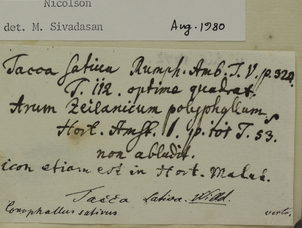 Nicolson
det. M. Sivadasan Aug. 1980
Tacca sativa Rumph. Amb. T. V. p. 324
T. 112. optime quadrat
Arum Zeilanicum polyphyllum
Hort. Amst. 1. p. 101 T. 53.
non abludit.
icon etiam est in Hort. Malab.
Tacca sativa. Willd.
Conophallus sativus verte.